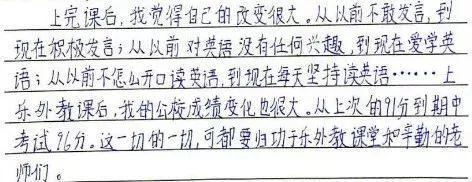 上完课后，我觉得自己的改变很大。从以前不敢发言，到
现在积极发言；从以前对英语没有任何兴趣，到现在爱学英
语；从以前不怎么开口读英语，到现在每天坚持读英语……上
乐外教课后，我的公校成绩变化也很大。从上次的91分到期中
考试96分。这一切的一切，可都要归功于乐外教课堂和辛勤的老
师们。